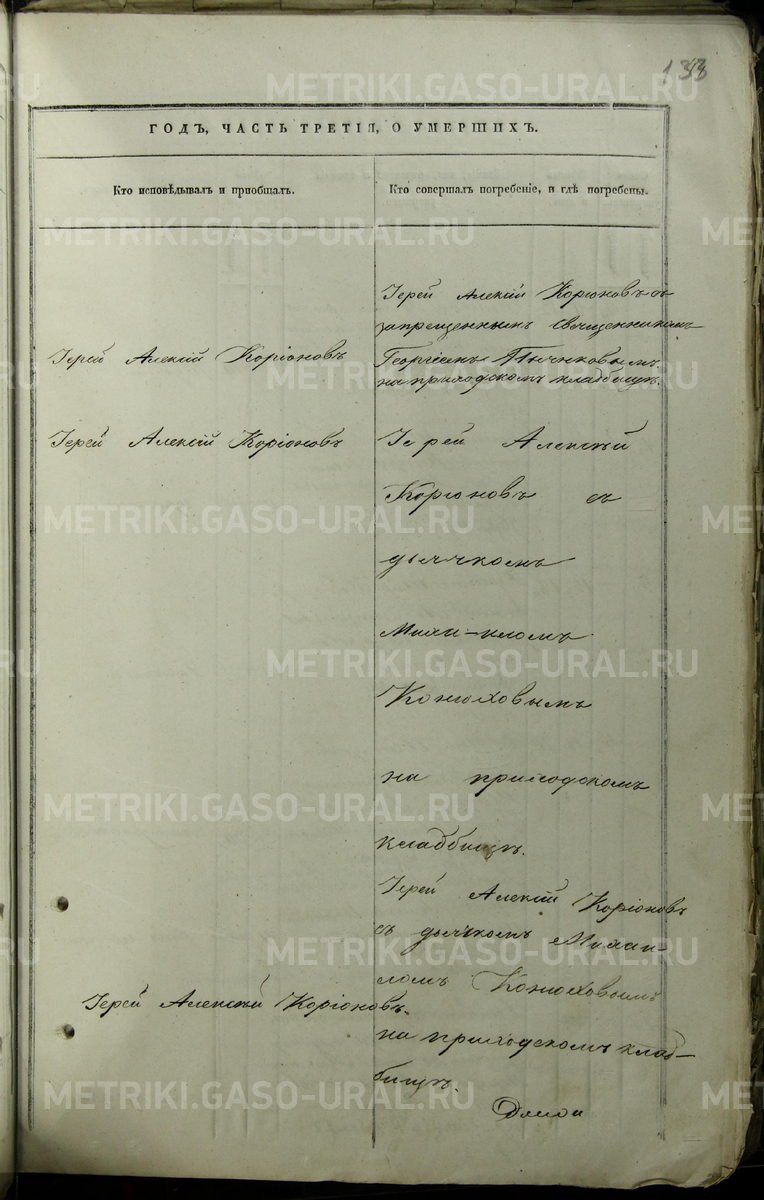 138
ГОДЪ, ЧАСТЬ ТРЕТІЯ, О УМЕРШИХЪ.
Кто исповѣдывалъ и пріобщалъ.
Кто совершалъ погребеніе, и гдѣ погребены.
Іерей Алексій Коріоновъ
Іерей Алексій Коріоновъ съ
запрещеннымъ священникомъ
Георгіемъ
на приходскомъ кладбищѣ.
Іерей Алексій Коріоновъ
Іерей Алексѣй
Коріоновъ съ
дьячкомъ
Михаиломъ
Конюховымъ
на приходскомъ
кладбищѣ.
Іерей Алексѣй Коріоновъ.
Іерей Алексій Коріоновъ
съ дьячкомъ Михаи-
ломъ Конюховымъ
на приходскомъ клад-
бищѣ.
METRIKI.GASO-URAL.RU